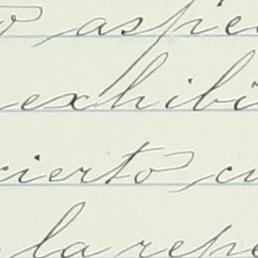 o aspe
exhibi
cierto cu
la repe